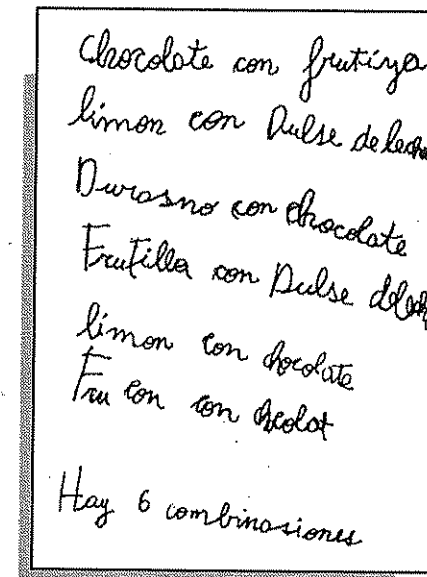 Chocolate con frutiya
limon con Dulse de leche
Durasno con chocolate
Frutilla con Dulse de leche
limon con chocolate
Fru con con chcolat
Hay 6 combinasiones